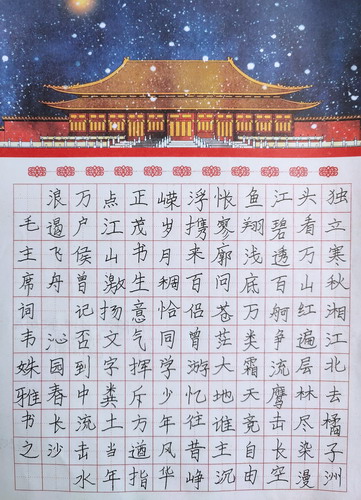 独立寒秋湘江北去橘子洲
头看万山红遍层林尽染漫
江碧透百舸争流鹰击长空
鱼翔浅底万类霜天竞自由
怅寥廓问苍茫大地谁主沉
浮携来百侣曾游忆往昔峥
嵘岁月稠恰同学少年风华
正茂书生意气挥斥方遒指
点江山激扬文字粪土当年
万户侯曾记否到中流击水
浪遏飞舟 沁园春长沙
毛主席词韦姝雅书之